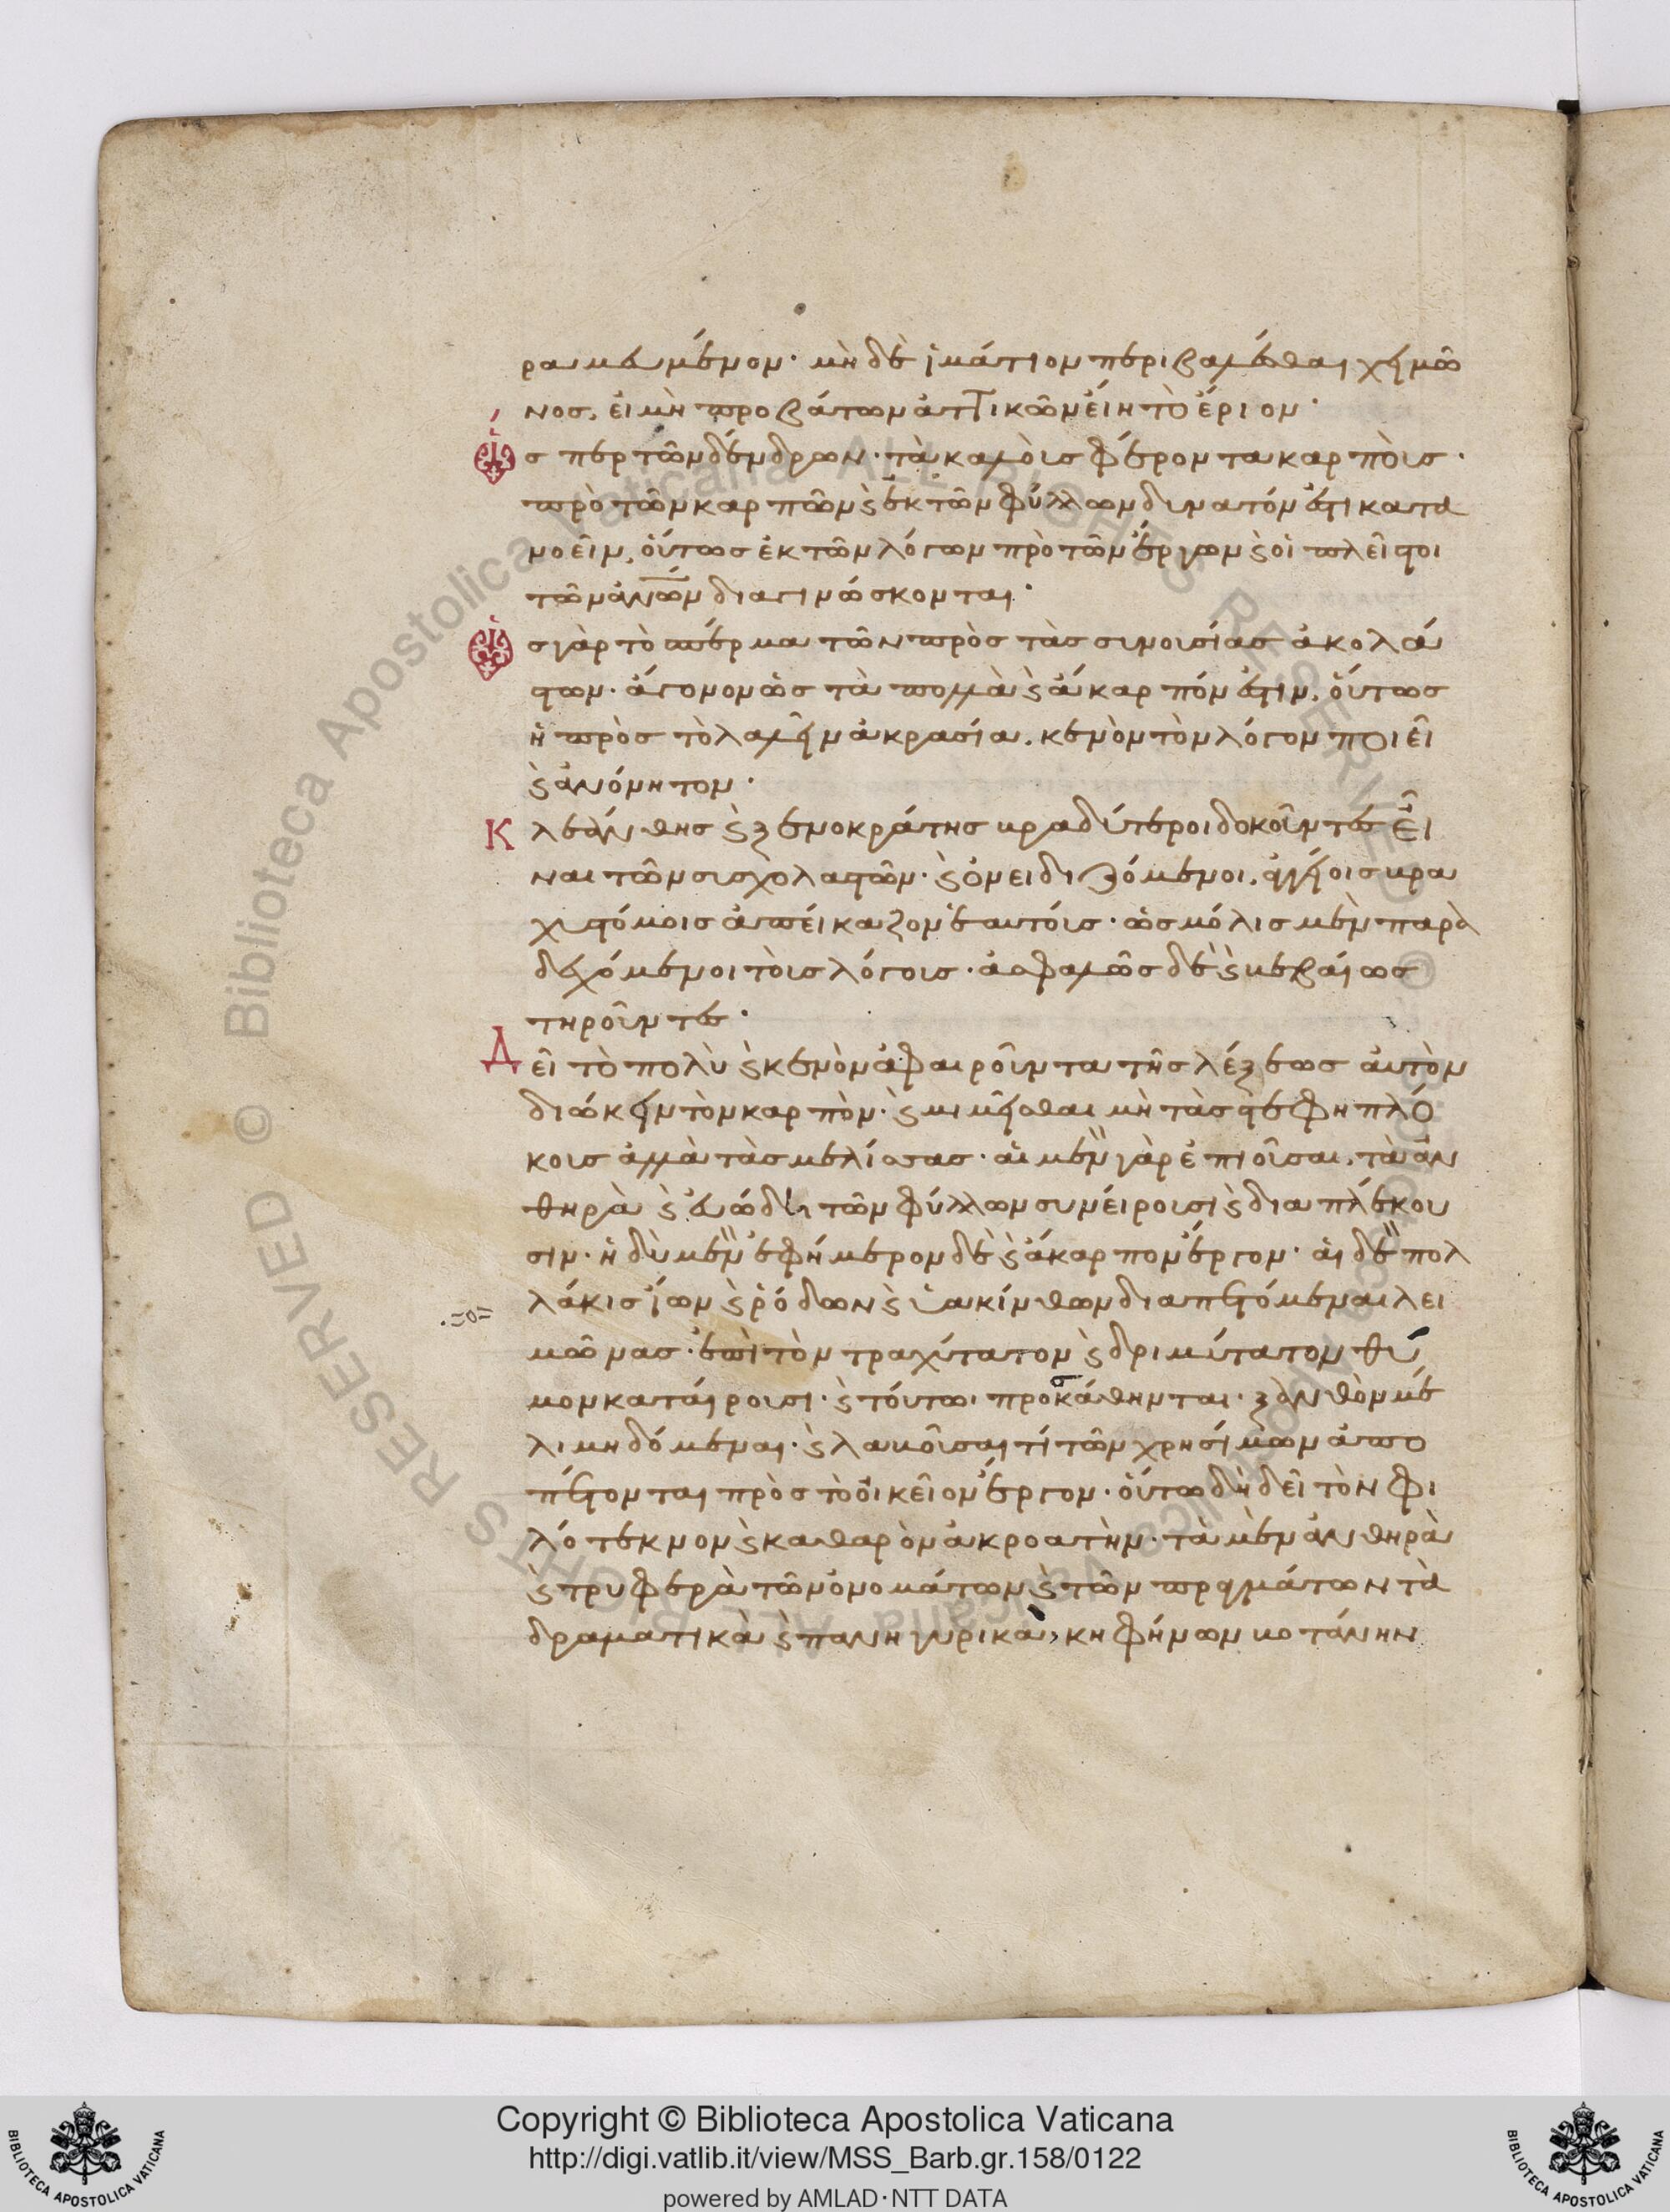 ραμευμένον· μὴ δὲ ἱμάτιον περιβαλέσθαι χειμῶ
νος, εἰ μὴ προβάτων ἀττικῶν εἴη τὸ ἔριον·
Ὥσπερ τῶν δένδρων· τὰ καλοὺς φέροντα καρποὺς·
πρὸ τῶν καρπῶν ϗ ἐκ τῶν φύλλων δυνατόν ἐστι κατα
νοεῖν, οὕτως ἐκ τῶν λόγων πρὸ τῶν ἔργων ϗ οἱ πλεῖστοι
τῶν ἀνων διαγινώσκονται·
Ὡς γὰρ τὸ σπέρμα τῶν πρὸς τὰς συνουσίας ἀκολά
στων· ἄγονον ὡς τὰ πολλὰ ϗ ἄκαρπόν ἐστιν, οὕτως
ἡ πρὸς τὸ λαλεῖν ἀκρασία, κενὸν τὸν λόγον ποιεῖ
ϗ ἀνόνητον·
Κλεάνθης ϗ ξενοκράτης βραδύτεροι δοκοῦντες εἶ
ναι τῶν συσχολαστῶν· ϗ ὀνειδιζόμενοι, ἀγγείοις βρα
χυστόμοις ἀπείκαζον ἑαυτούς· ὡς μόλις μὲν παρα
δεχόμενοι τοὺς λόγους· ἀσφαλῶς δὲ ϗ βεβαίως
τηροῦντες·
Δεῖ τὸ πολὺ ϗ κενὸν ἀφαιροῦντα τῆς λέξεως αὐτὸν
διώκειν τὸν καρπὸν· ϗ μιμεῖσθαι μὴ τὰς στεφηπλό
κους ἀλλὰ τὰς μελίσσας· αἱ μὲν γὰρ ἐπιοῦσαι, τὰ ἀν
θηρὰ ϗ εὐώδη τῶν φύλλων συνείρουσι ϗ διαπλέκου
σιν· ἡδὺ μὲν ἐφήμερον δὲ ϗ ἄκαρπον ἔργον· αἱ δὲ πολ
λάκις ἴων ϗ ῥόδων ϗ ὑακίνθων διαπετόμεναι λει
μῶνας· ἐπὶ τὸν τραχύτατον ϗ δριμύτατον θύ
μον καταίρουσι· ϗ τούτωι προσκάθηνται· ξανθὸν μέ
λι μηδόμεναι· ϗ λαβοῦσαι τί τῶν χρησίμων ἀπο
πέτονται πρὸς τὸ οἰκεῖον ἔργον· οὕτω δὴ δεῖ τὸν φι
λότεκνον ϗ καθαρὸν ἀκροατὴν· τὰ μὲν ἀνθηρὰ
ϗ τρυφερὰ τῶν ὀνομάτων ϗ τῶν πραγμάτων τὰ
δραματικὰ ϗ πανηγυρικὰ, κηφήνων βοτάνην
Copyright © Biblioteca Apostolica Vaticana
http://digi.vatlib.it/view/MSS_Barb.gr.158/0122
powered by AMLAD·NTT DATA